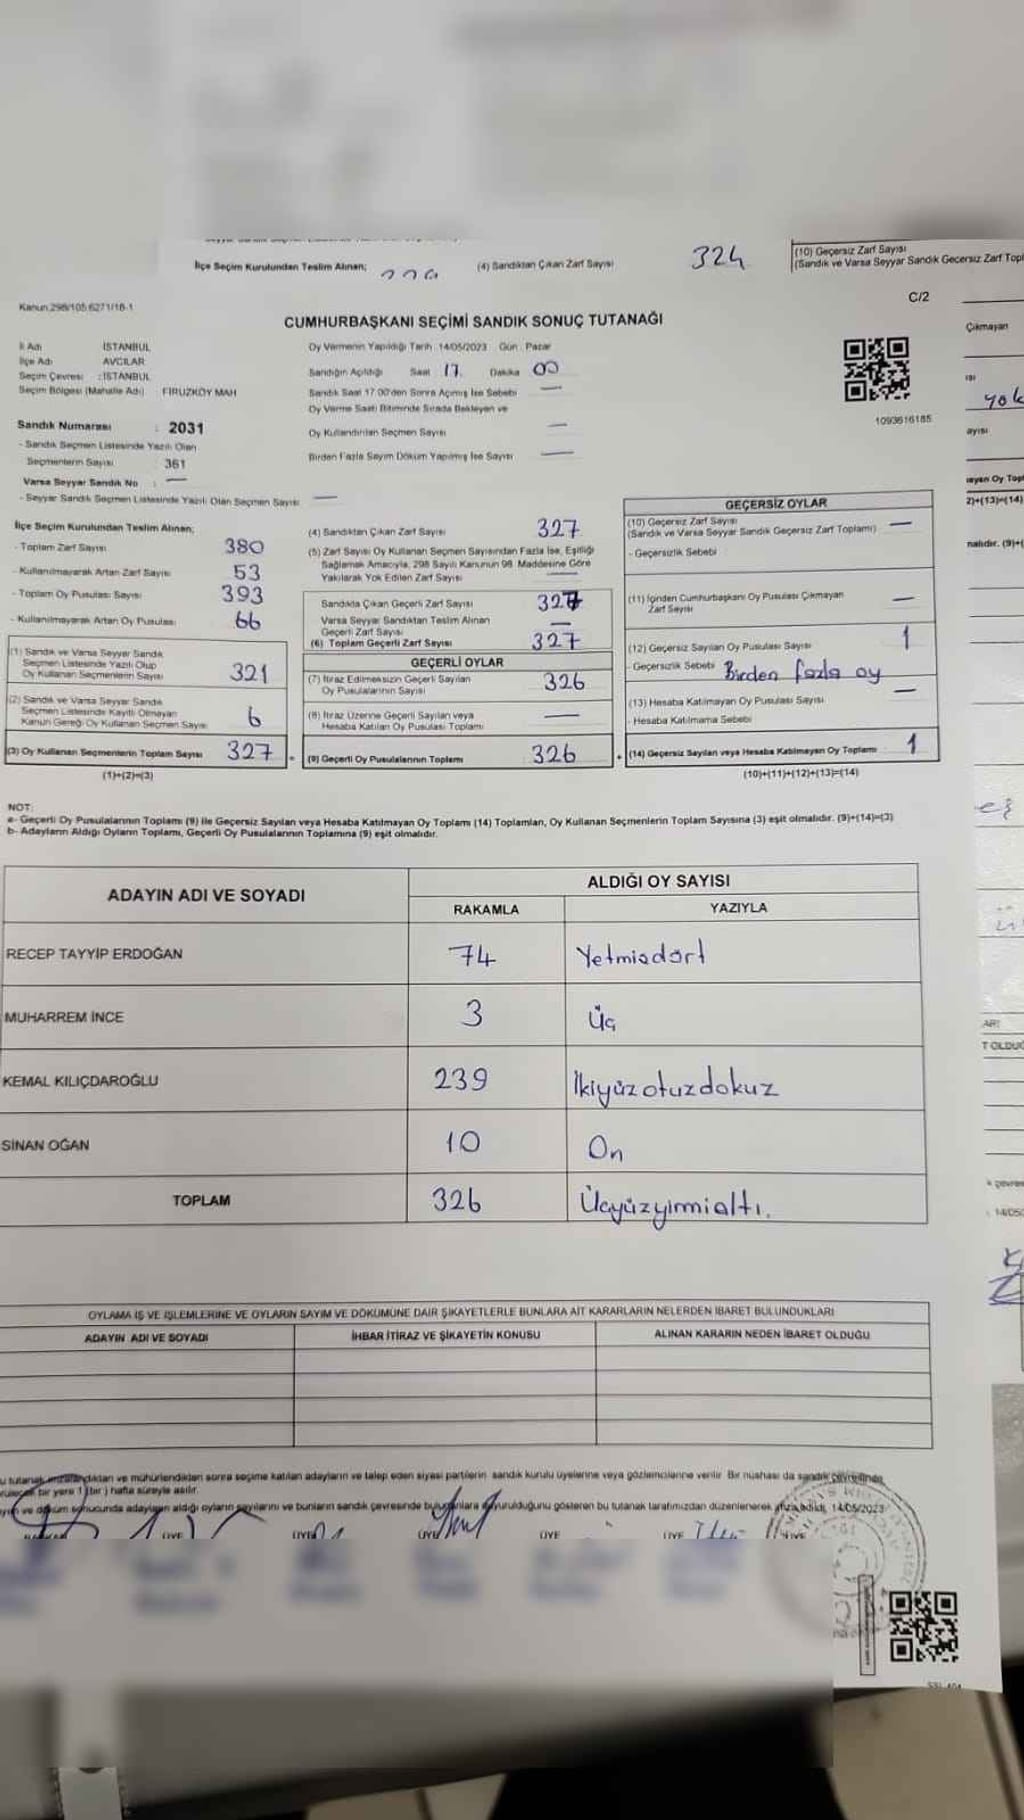 İlçe Seçim Kurulundan Teslim Alınan;
(4) Sandıktan Çıkan Zarf Sayısı 324
(10) Geçersiz Zarf Sayısı
(Sandık ve Varsa Seyyar Sandık Geçersiz Zarf Topl
Kanun:298/105.6271/18-1
C/2
CUMHURBAŞKANI SEÇİMİ SANDIK SONUÇ TUTANAĞI
İl Adı İSTANBUL
İlçe Adı AVCILAR
Seçim Çevresi : İSTANBUL
Seçim Bölgesi (Mahalle Adı) FİRUZKÖY MAH
Oy Vermenin Yapıldığı Tarih : 14/05/2023 Gün : Pazar
Sandığın Açıldığı Saat 17. Dakika 00
Sandık Saat 17.00'den Sonra Açılmış İse Sebebi —
Oy Verme Saati Bitiminde Sırada Bekleyen ve
Oy Kullandırılan Seçmen Sayısı —
Birden Fazla Sayım Döküm Yapılmış İse Sayısı —
1093616185
Sandık Numarası : 2031
- Sandık Seçmen Listesinde Yazılı Olan
Seçmenlerin Sayısı : 361
Varsa Seyyar Sandık No : —
- Seyyar Sandık Seçmen Listesinde Yazılı Olan Seçmen Sayısı —
İlçe Seçim Kurulundan Teslim Alınan;
- Toplam Zarf Sayısı 380
- Kullanılmayarak Artan Zarf Sayısı 53
- Toplam Oy Pusulası Sayısı 393
- Kullanılmayarak Artan Oy Pusulası 66
(1) Sandık ve Varsa Seyyar Sandık
Seçmen Listesinde Yazılı Olup
Oy Kullanan Seçmenlerin Sayısı 321
(2) Sandık ve Varsa Seyyar Sandık
Seçmen Listesinde Kayıtlı Olmayan
Kanun Gereği Oy Kullanan Seçmen Sayısı 6
(3) Oy Kullanan Seçmenlerin Toplam Sayısı 327
(1)+(2)=(3)
(4) Sandıktan Çıkan Zarf Sayısı 327
(5) Zarf Sayısı Oy Kullanan Seçmen Sayısından Fazla İse, Eşitliği
Sağlamak Amacıyla, 298 Sayılı Kanunun 98. Maddesine Göre
Yakılarak Yok Edilen Zarf Sayısı —
Sandıkta Çıkan Geçerli Zarf Sayısı 327
Varsa Seyyar Sandıktan Teslim Alınan
Geçerli Zarf Sayısı —
(6) Toplam Geçerli Zarf Sayısı 327
GEÇERLİ OYLAR
(7) İtiraz Edilmeksizin Geçerli Sayılan
Oy Pusulalarının Sayısı 326
(8) İtiraz Üzerine Geçerli Sayılan veya
Hesaba Katılan Oy Pusulası Toplamı —
(9) Geçerli Oy Pusulalarının Toplamı 326
GEÇERSİZ OYLAR
(10) Geçersiz Zarf Sayısı
(Sandık ve Varsa Seyyar Sandık Geçersiz Zarf Toplamı) —
- Geçersizlik Sebebi
(11) İçinden Cumhurbaşkanı Oy Pusulası Çıkmayan
Zarf Sayısı —
(12) Geçersiz Sayılan Oy Pusulası Sayısı 1
- Geçersizlik Sebebi Birden fazla oy
(13) Hesaba Katılmayan Oy Pusulası Sayısı —
- Hesaba Katılmama Sebebi
(14) Geçersiz Sayılan veya Hesaba Katılmayan Oy Toplamı 1
(10)+(11)+(12)+(13)=(14)
Çıkmayan
yok
ayısı
2)+(13)=(14)
NOT:
a- Geçerli Oy Pusulalarının Toplamı (9) ile Geçersiz Sayılan veya Hesaba Katılmayan Oy Toplamı (14) Toplamları, Oy Kullanan Seçmenlerin Toplam Sayısına (3) eşit olmalıdır. (9)+(14)=(3)
b- Adayların Aldığı Oyların Toplamı, Geçerli Oy Pusulalarının Toplamına (9) eşit olmalıdır.
ADAYIN ADI VE SOYADI ALDIĞI OY SAYISI
RAKAMLA YAZIYLA
RECEP TAYYİP ERDOĞAN 74 Yetmişdört
MUHARREM İNCE 3 Üç
KEMAL KILIÇDAROĞLU 239 İkiyüzotuzdokuz
SİNAN OĞAN 10 On
TOPLAM 326 Üçyüzyirmialtı.
OYLAMA İŞ VE İŞLEMLERİNE VE OYLARIN SAYIM VE DÖKÜMÜNE DAİR ŞİKAYETLERLE BUNLARA AİT KARARLARIN NELERDEN İBARET BULUNDUKLARI
ADAYIN ADI VE SOYADI İHBAR İTİRAZ VE ŞİKAYETİN KONUSU ALINAN KARARIN NEDEN İBARET OLDUĞU
u tutanak imzalandıktan ve mühürlendikten sonra seçime katılan adayların ve talep eden siyasi partilerin sandık kurulu üyelerine veya gözlemcilerine verilir. Bir nüshası da sandık çevresinde
bir yere 1 (bir) hafta süreyle asılır.
ve döküm sonucunda adayların aldığı oyların sayılarını ve bunların sandık çevresinde bulunanlara duyurulduğunu gösteren bu tutanak tarafımızdan düzenlenerek imzalandı. 14/05/2023
ÜYE ÜYE ÜYE ÜYE ÜYE ÜYE